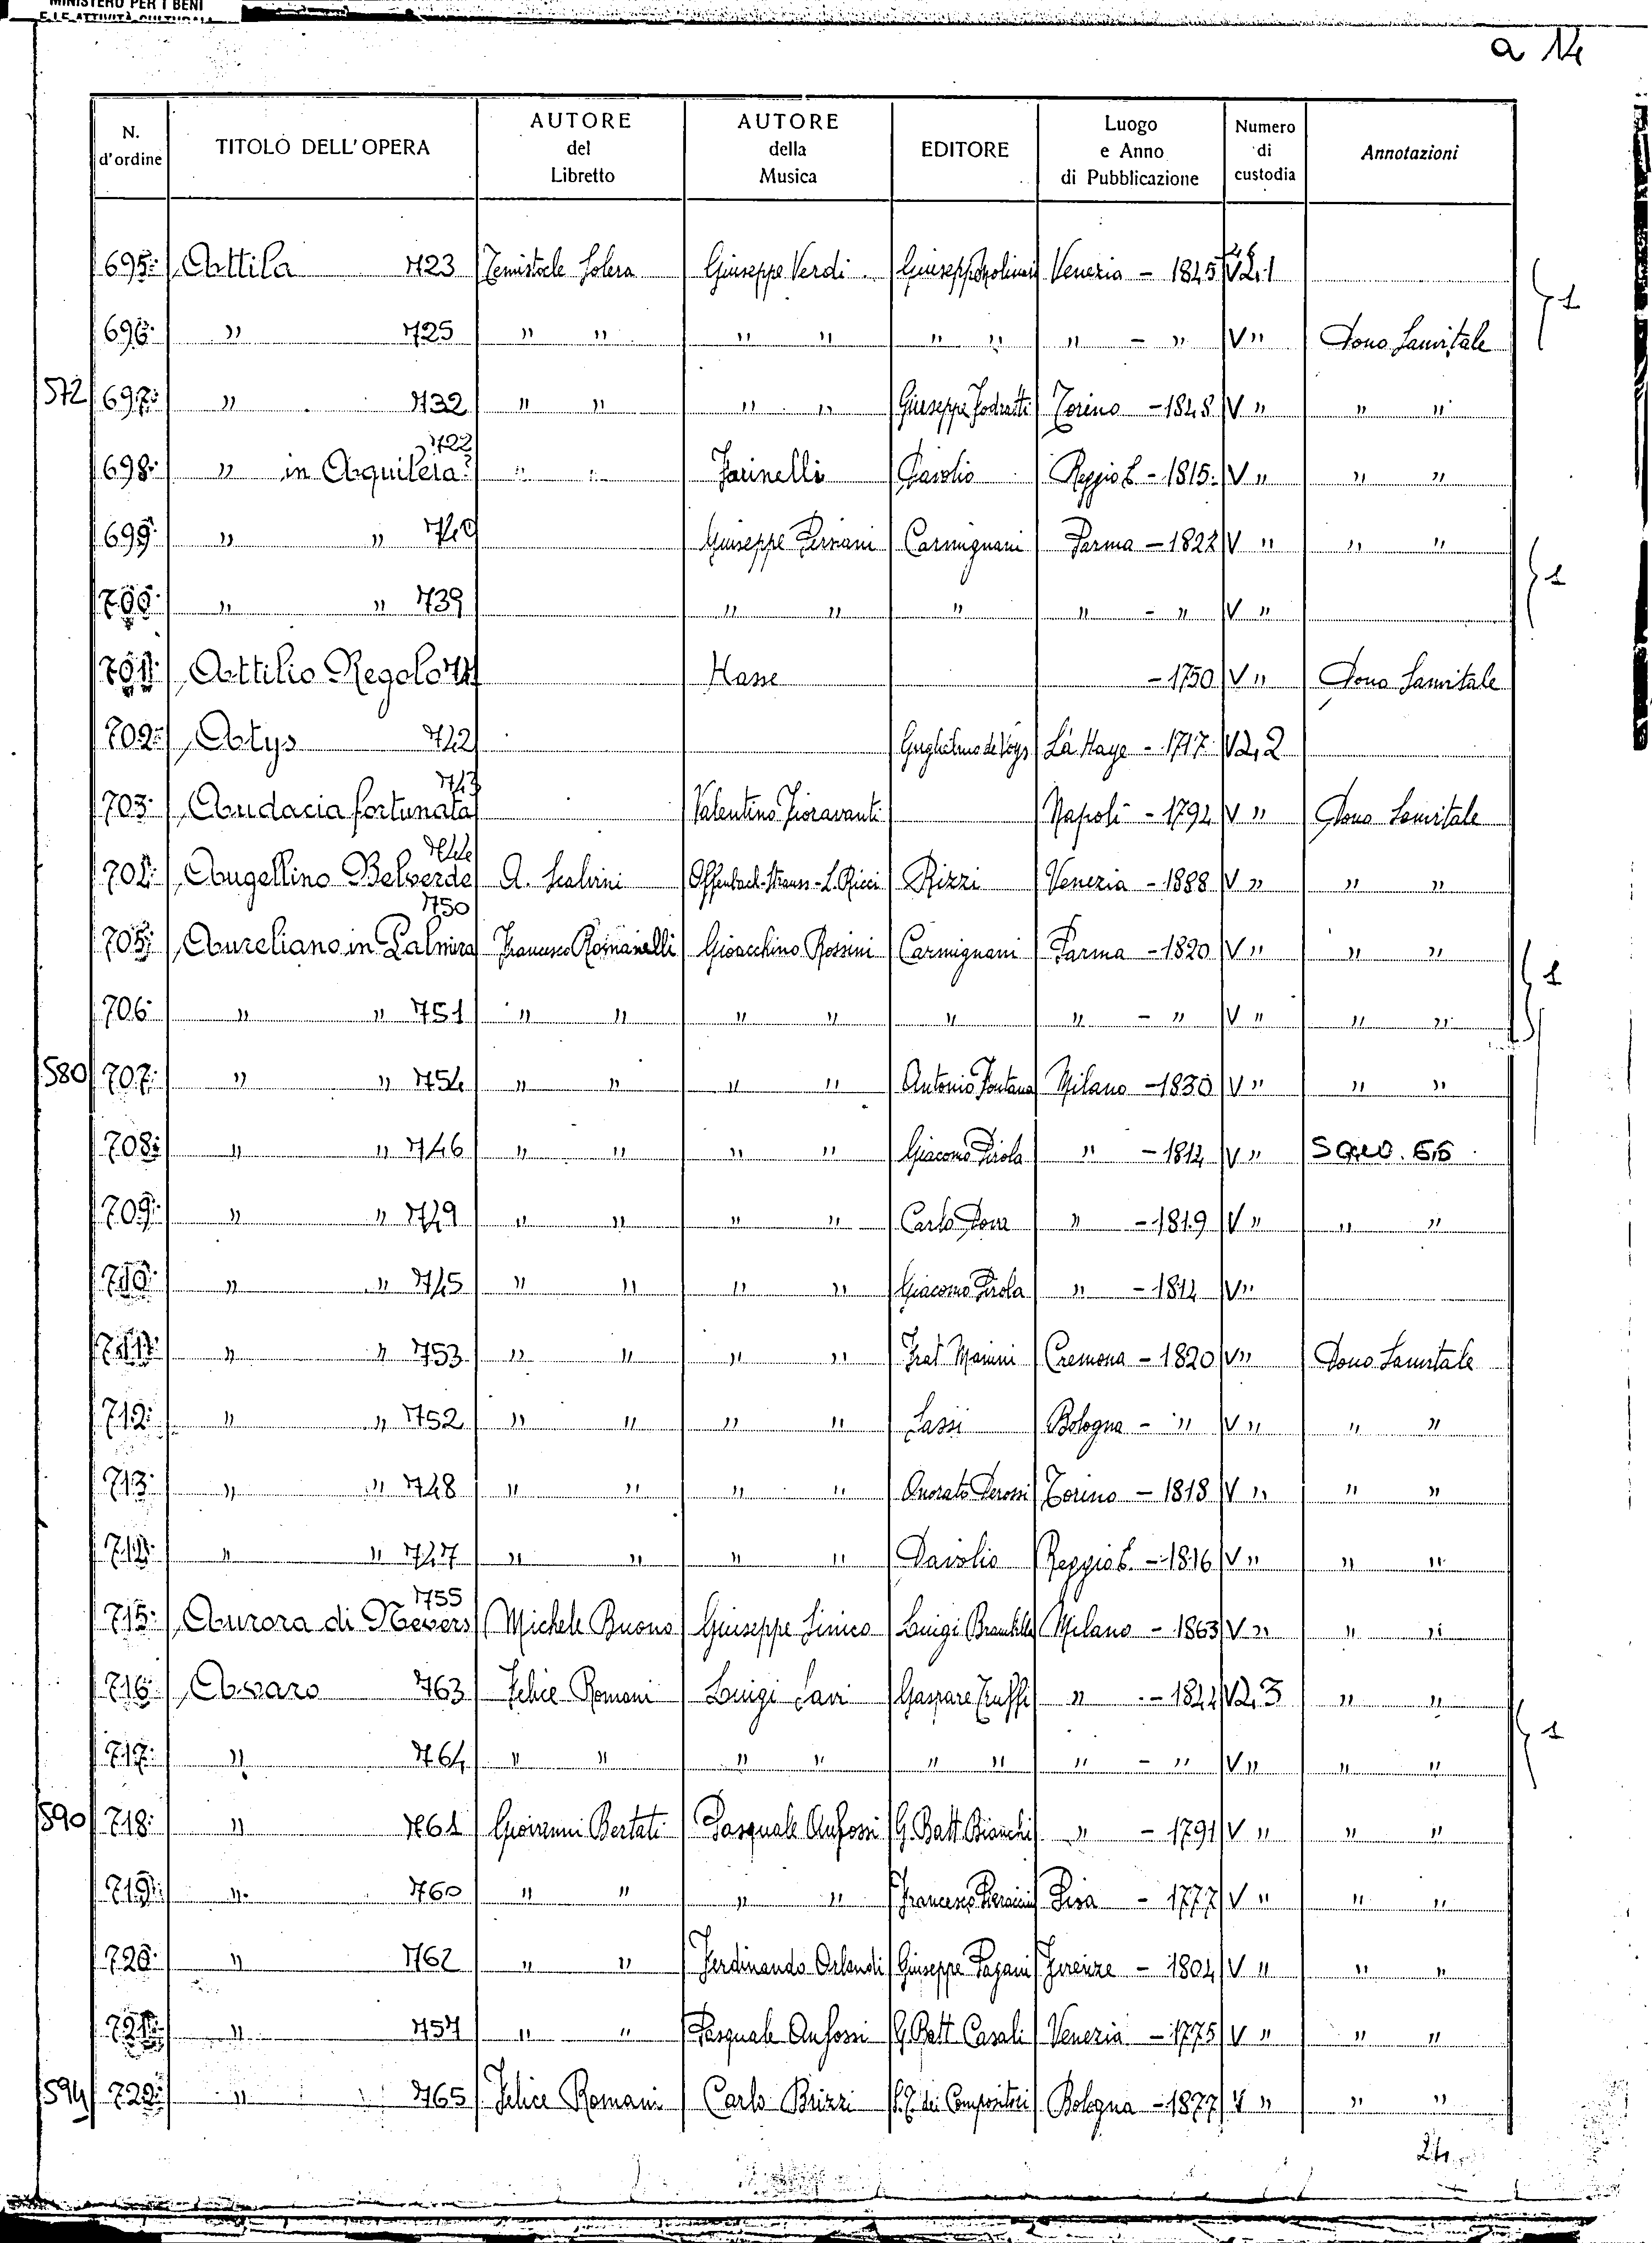 MINISTERO PER I BENI
E LE ATTIVITÀ CULTURALI
a 14
N. d'ordine TITOLO DELL'OPERA AUTORE del Libretto AUTORE della Musica EDITORE Luogo e Anno di Pubblicazione Numero di custodia Annotazioni
695 Attila 723 Temistocle Solera Giuseppe Verdi Venezia - 1845 V 2,1
696 " 725 " " " " " " " - " V " Dono Sanvitale
572 697 " 732 " " " " Giuseppe Fodratti Torino - 1848 V " " "
722
698 " in Aquileia? " " Farinelli Davolio Reggio E - 1815 V " " "
699 " " 740 Giuseppe Persiani Carmignani Parma - 1822 V " " "
700 " " 739 " " " " - " V "
701 Attilio Regolo 741 Hasse - 1750 V " Dono Sanvitale
702 Atys 742 Guglielmo de Voys La Haye - 1717 V 2,2
743
703 Audacia fortunata Valentino Fioravanti Napoli - 1792 V " Dono Sanvitale
744
704 Augellino Belverde A. Scalvini Offenbach-Strauss-L. Ricci Rizzi Venezia - 1888 V " " "
750
705 Aureliano in Palmira Francesco Romanelli Gioacchino Rossini Carmignani Parma - 1820 V " " "
706 " " 751 " " " " " " - " V " " "
580 707 " " 754 " " " " Antonio Fontana Milano - 1830 V " " "
708 " " 746 " " " " Giacomo Pirola " - 1814 V "
709 " " 749 " " " " Carlo Dova " - 1819 V " " "
710 " " 745 " " " " Giacomo Pirola " - 1814 V "
711 " " 753 " " " " Frat Manini Cremona - 1820 V " Dono Sanvitale
712 " " 752 " " " " Sassi Bologna - " V " " "
713 " " 748 " " " " Onorato Derossi Torino - 1818 V " " "
714 " " 747 " " " " Davolio Reggio E. - 1816 V " " "
755
715 Aurora di Nevers Michele Buono Giuseppe Sinico Luigi Brambilla Milano - 1863 V " " "
716 Avaro 763 Felice Romani Luigi Savi Gaspare Truffi " - 1844 V 2,3 " "
717 " 764 " " " " " " " - " V " " "
590 718 " 761 Giovanni Bertati Pasquale Anfossi G. Batt Bianchi " - 1791 V " " "
719 " 760 " " " " Francesco Pieraccini Pisa - 1777 V " " "
720 " 762 " " Ferdinando Orlandi Giuseppe Pagani Firenze - 1804 V " " "
721 " 757 " " Pasquale Anfossi G. Batt Casali Venezia - 1775 V " " "
594 722 " 765 Felice Romani Carlo Brizzi S. T. dei Compositori Bologna - 1877 V " " "
1
1
1
1
24